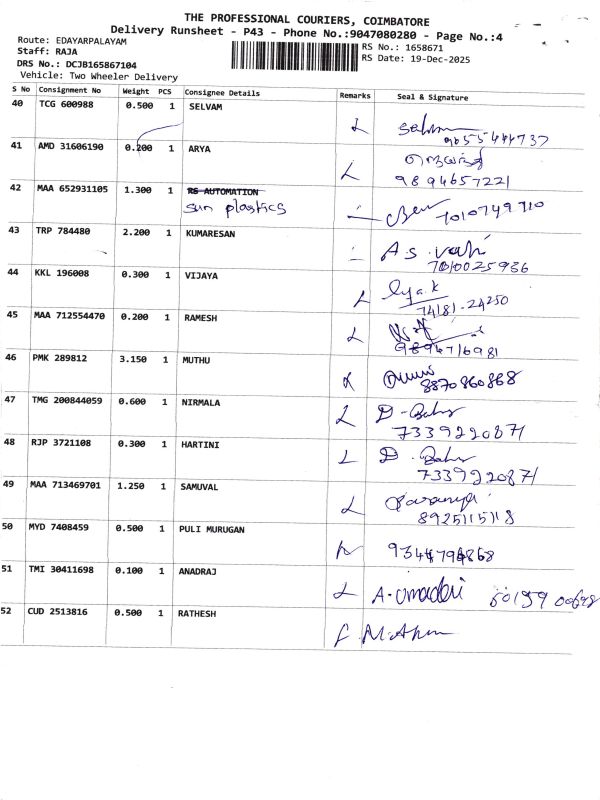 THE PROFESSIONAL COURIERS, COIMBATORE
Delivery Runsheet - P43 - Phone No.:9047080280 - Page No.:4
Route: EDAYARPALAYAM
RS No.: 1658671
Staff: RAJA
RS Date: 19-Dec-2025
DRS No.: DCJB165867104
Vehicle: Two Wheeler Delivery
S No Consignment No Weight PCS Consignee Details Remarks Seal & Signature
40 TCG 600988 0.500 1 SELVAM
9655444737
41 AMD 31606190 0.200 1 ARYA
9894657221
42 MAA 652931105 1.300 1 RS AUTOMATION
sun plastics
7010749710
43 TRP 784480 2.200 1 KUMARESAN
7010025936
44 KKL 196008 0.300 1 VIJAYA
74181-24250
45 MAA 712554470 0.200 1 RAMESH
9894716981
46 PMK 289812 3.150 1 MUTHU
8870860868
47 TMG 200844059 0.600 1 NIRMALA
7339220871
48 RJP 3721108 0.300 1 HARTINI
7339220871
49 MAA 713469701 1.250 1 SAMUVAL
8925115118
50 MYD 7408459 0.500 1 PULI MURUGAN
51 TMI 30411698 0.100 1 ANADRAJ
52 CUD 2513816 0.500 1 RATHESH